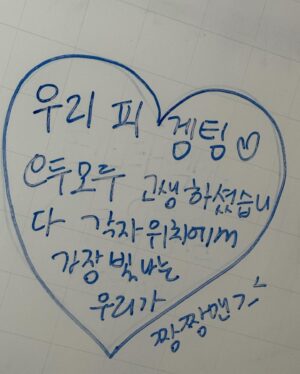 우리 피 겜팀♡
모두모두 고생하셨습니
다 각자 위치에서
가장 빛나는
우리가
짱짱맨 ^^